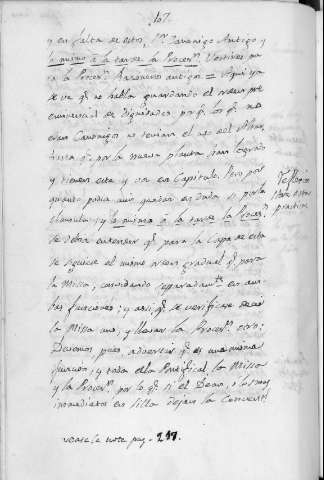 107.
y en falta de estos, Sr. Racionero Antiguo y
lo mismo à la tarde la Procesn. Vestirse pa
ra la Procesn. Racioneros antiguos = Aqui ya
se ve qe. no habla guardando el orden pre
eminencial de Dignidades pr. qe. los qe. no
eran Canonigos no tenian el uso del Altar,
hasta qe. por la nueva planta han logrado
y tienen esta y voz en Capitulo. Pero por
quanto podia aun quedar en duda si por la
clausula: y lo mismo à la tarde la Procesn.
se debia entender qe. para la Capa de esta
se siguiese el mismo orden gradual qe. para
la Missa, convidando separadamte. en am
bas funciones; y assi qe. se verificase decir
la Missa uno, y llevar la Procesn. otro;
Devemos, pues advertir qe. es una misma
funcion, y toda ella Pontifical la Missa
y la Procesn. por lo qe. si el Dean, o los mas
inmediatos en silla dejan la
Reflexion
sobre esta
practica
vease la nota pag. 217.